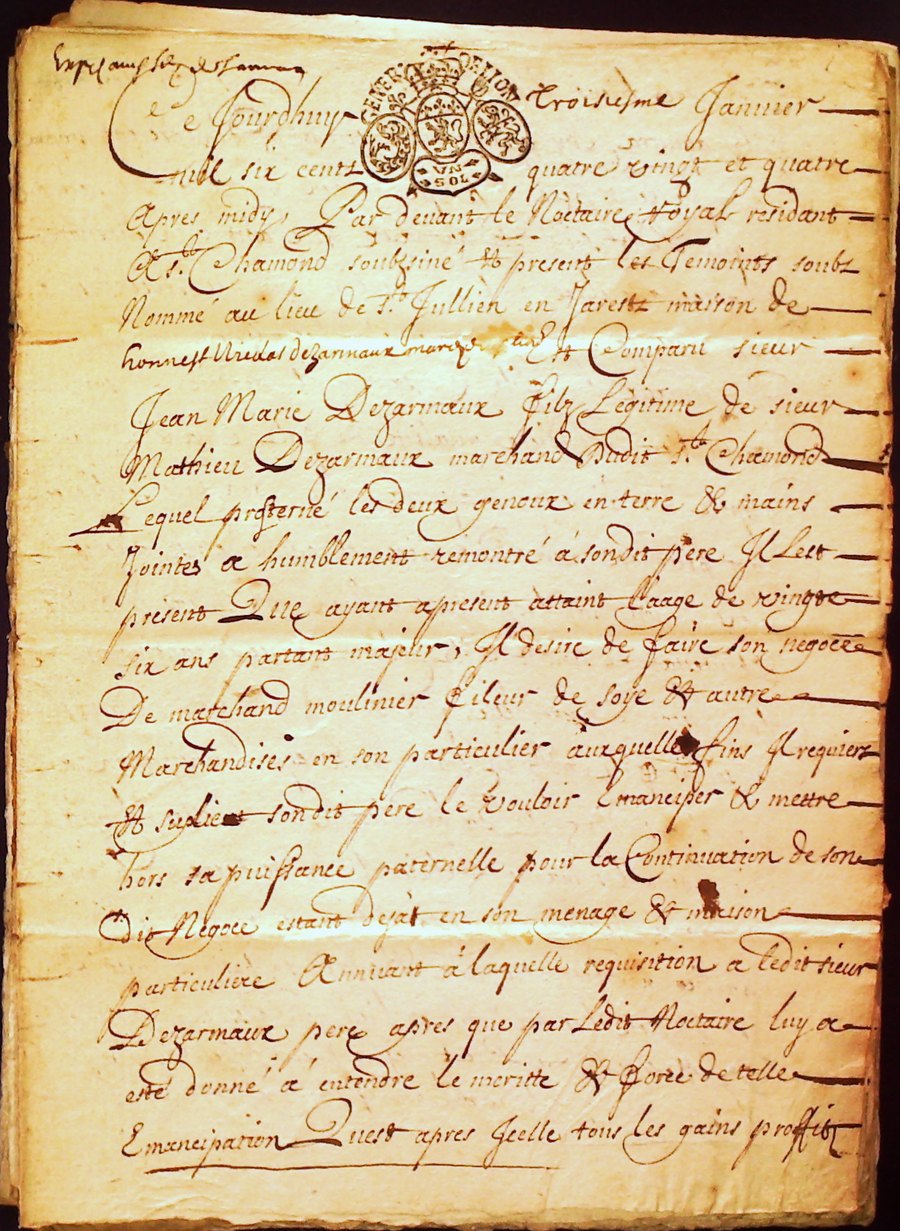 GENER DE LION
VN
SOL
Ce Jourdhuy troisiesme Janvier
mil six centz quatre vingt et quatre
Apres midy, Par devant le Noctaire Royal residant
A St. Chamond soubzsiné & present les Temoints soubz
Nommé au lieu de St Jullien en Jarestz maison de
honnest Nicolas dezarmaux & Comparu sieur
Jean Marie Dezarmaux filz Legitime de sieur
Mathieu Dezarmaux marchand Dudit St. Chamond
Lequel prosterné les deux genoux en terre & mains
Jointes a humblement remontré à sondit pere Jllect
present Que ayant apresent attaint l'aage de vingte
six ans partant majeur, Jl desire de faire son negoce
De marchand moulinier fileur de soye & autre
Marchandises en son particulier auxquelles fins Jl requiert
& suplient sondit pere le vouloir Emanciper & mettre
hors sa puissance paternelle pour la Continuation de son
dit Negoce estant desjat en son menage & maison
particuliere Annuant à laquelle requisition a ledit sieur
Dezarmaux pere apres que par Ledit Noctaire luy a
esté donné á entendre le meritte & force de telle
Emancipation Quest apres Jcelle tous les gains proffitz